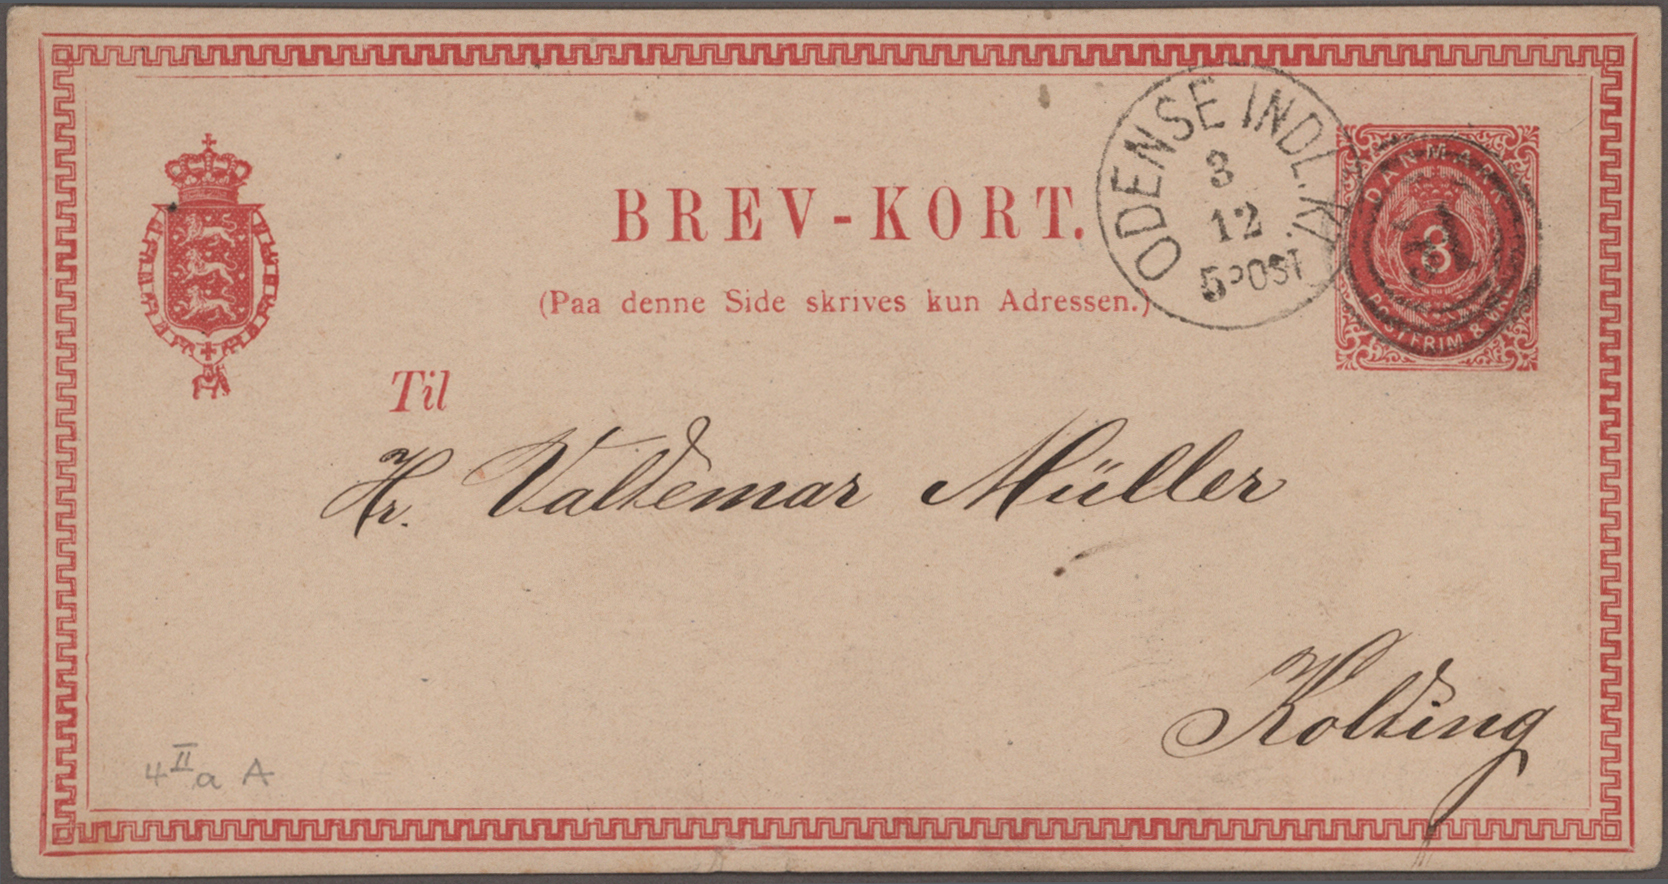 BREV-KORT.
(Paa denne Side skrives kun Adressen.)
ODENSE INDL. K
3
12
5 POST
DANMARK
3
POST FRIM.
Til
Hr. Valdemar Müller
Kolding
4 II a A